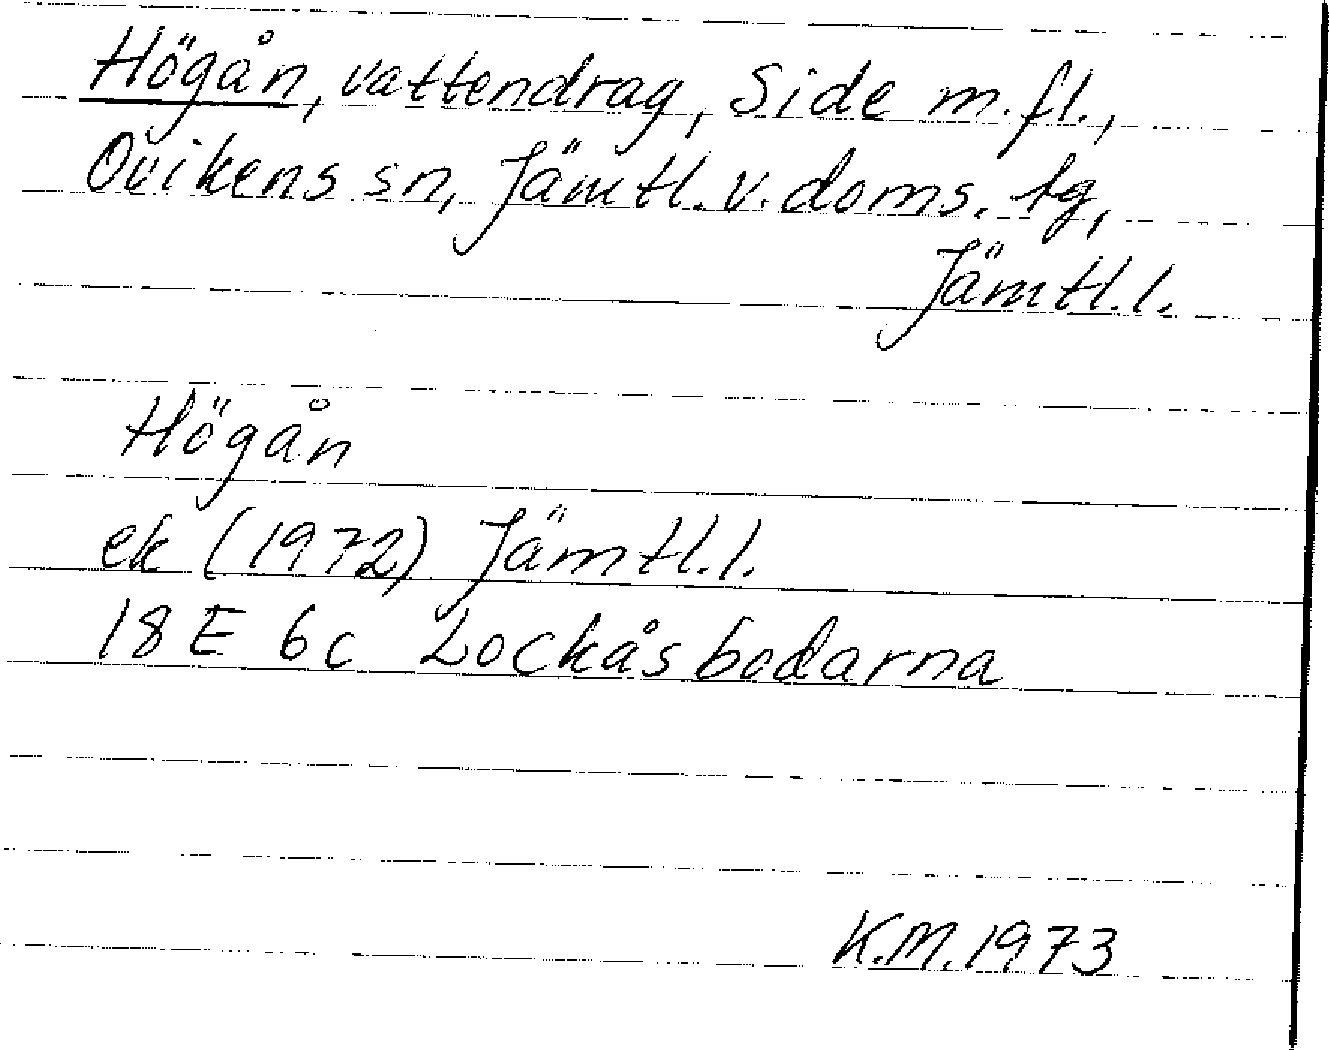 Högån, vattendrag, Side m.fl.,
Ovikens sn, Jämtl. v. doms. tg,
Jämtl. l.
Högån
ek (1972) Jämtl. l.
18 E 6c Lockåsbodarna
K.M. 1973